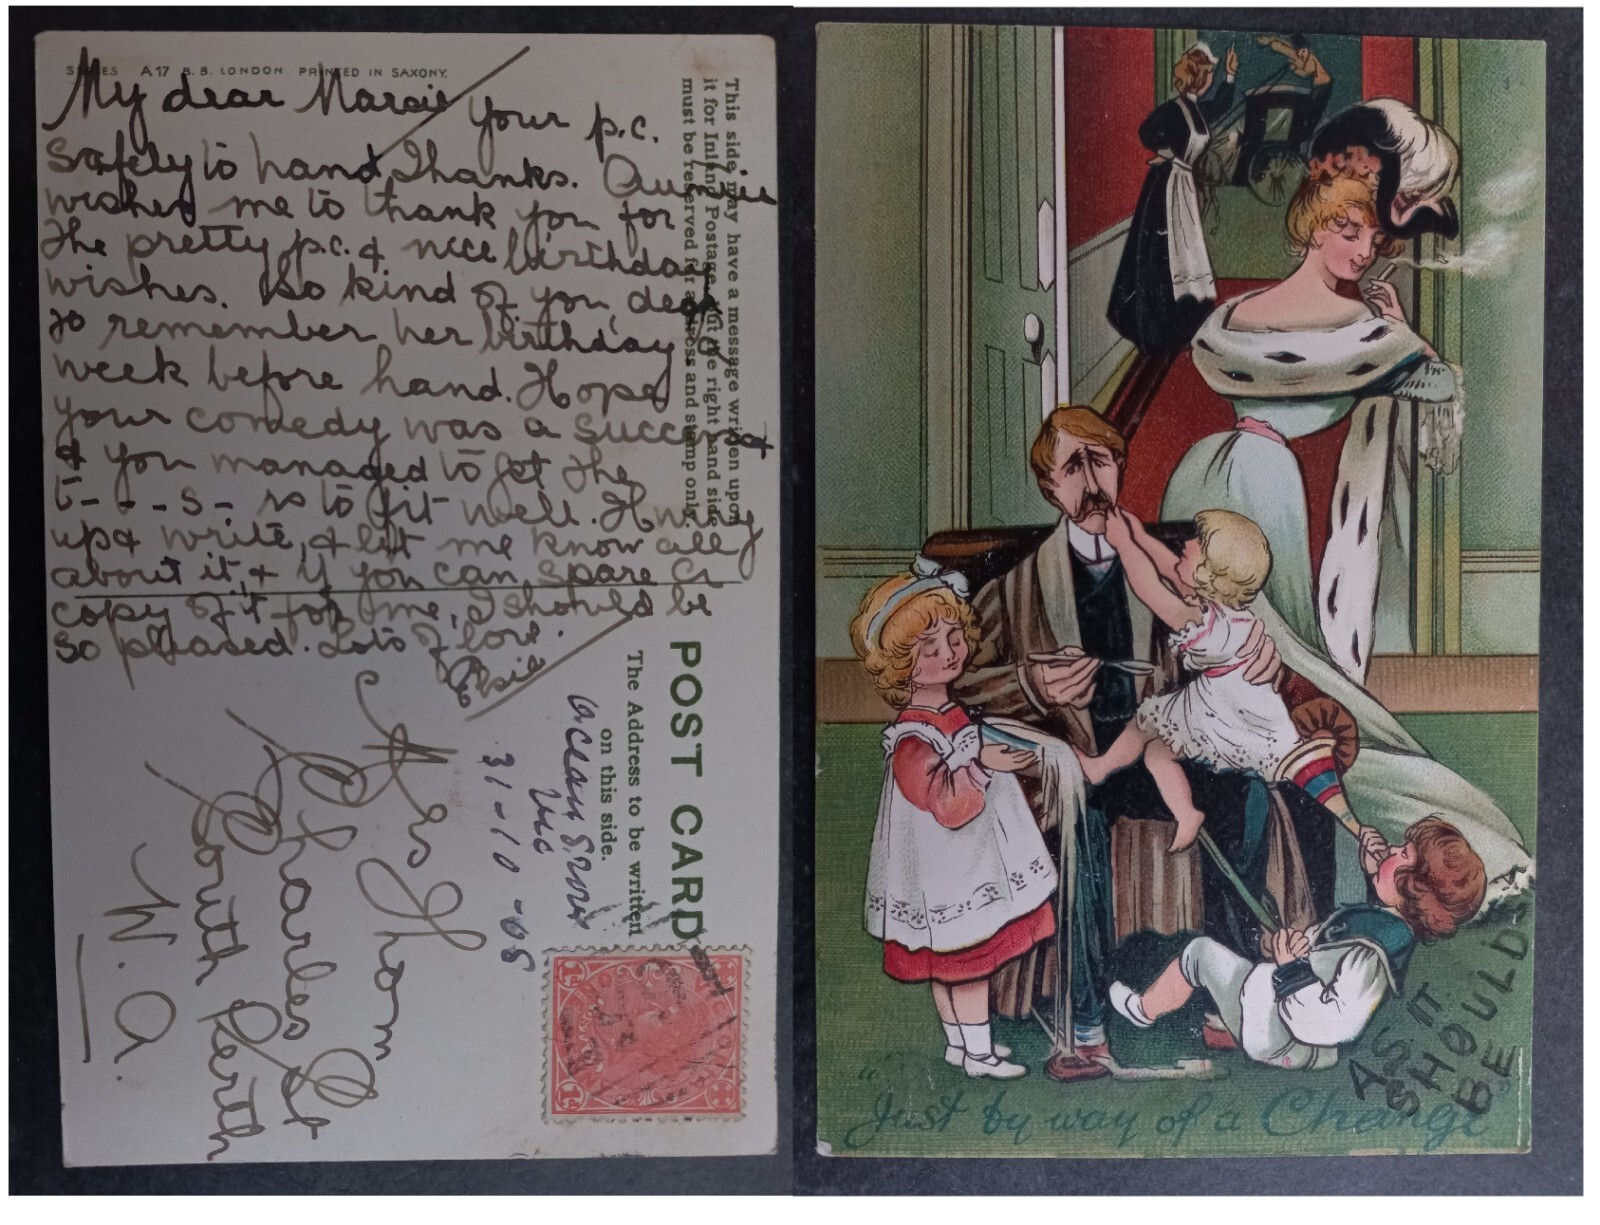 SERIES A 17 B.B. LONDON PRINTED IN SAXONY.
My dear Marcie
Your p.c.
safely to hand, Thanks. Auntie
wishes me to thank you for
the pretty p.c. & nice birthday
wishes. So kind of you, dear
to remember her birthday a
week before hand. Hope
your comedy was a success
& you managed to get the
t - - - s - so to fit well. Hurry
up & write, & let me know all
about it, & if you can spare a
copy of it for me, I should be
so pleased. Lots of love.
Elsie
This side may have a message written upon
it for Inland Postage, but the right hand side
must be reserved for address and stamp only.
POST CARD
The Address to be written
on this side.
Ocean Grove
Vic
31-10-05
Mrs Thom
Charles St
South Perth
W. A.
"Just by way of a Change"
AS IT
SHOULD
BE